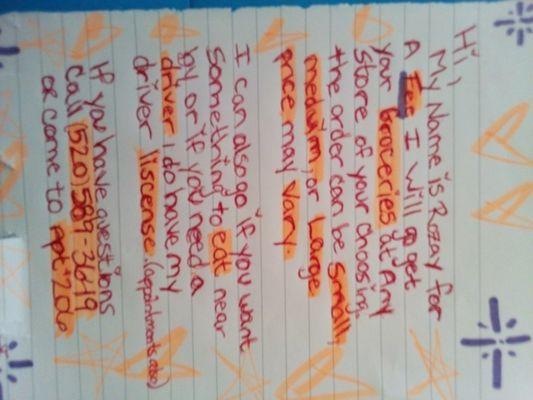 Hi,
My Name is Rozay for
A Fee I Will go get
your groceries at Any
store of your choosing.
the order can be small,
meduim, or Large
price may vary.
I can also go if you want
something to eat near
by or if you need a
driver, I do have my
driver liscense. (appointments also)
If you have questions
Call (520) 589-3619
or come to Apt# 206